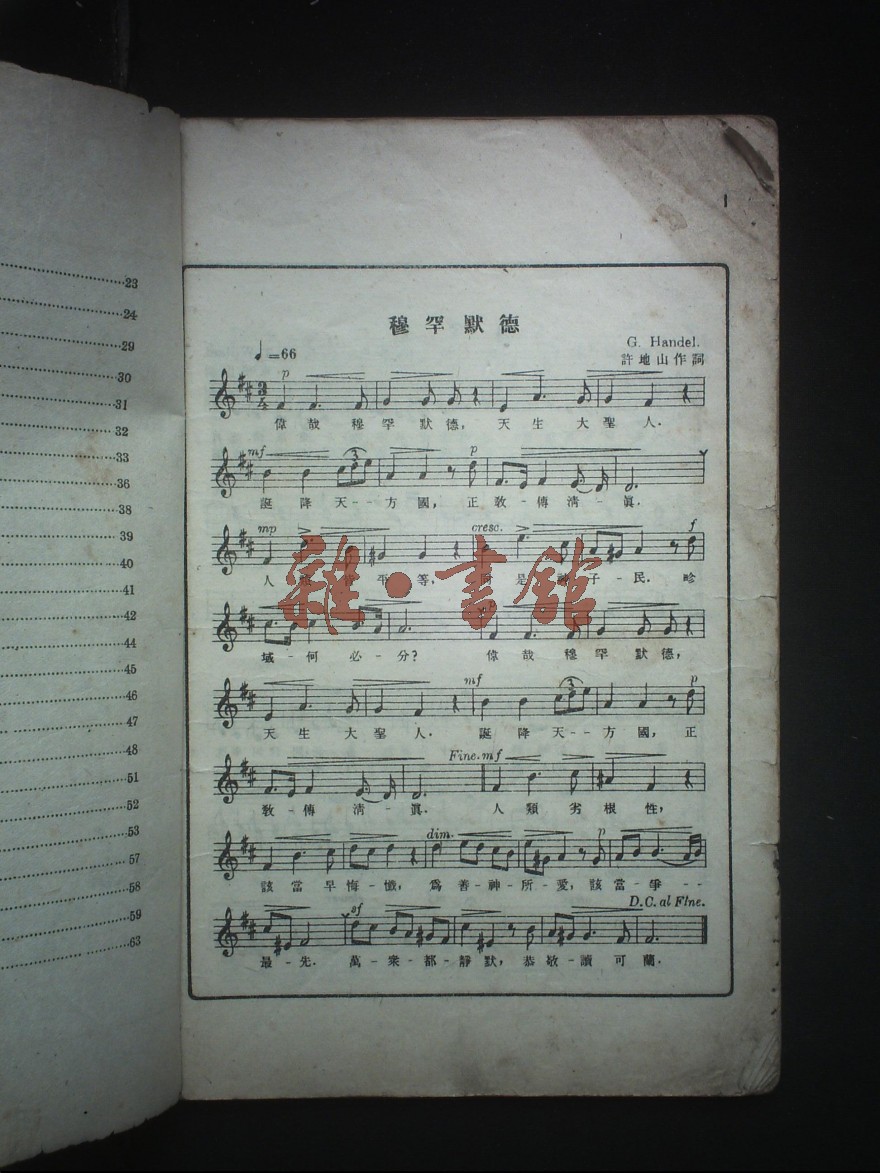 23
24
29
30
31
32
33
36
38
39
40
41
42
44
45
46
47
48
51
52
53
57
58
59
63
1
穆罕默德
♩=66
G. Handel.
許地山作詞
p
偉哉穆罕默德，天生大聖人．
mf 3 p
誕降天--方國，正敎-傳淸-眞．
mp cresc. f
人 平等， 是 子-民．畛
域-何必-分？ 偉哉穆罕默德，
mf 3 p
天生大聖人．誕降天--方國，正
Fine. mf
敎-傳淸-眞． 人類劣根性，
dim. p
該當早悔-懺，爲善-神-所-愛，該當-爭--
D.C. al Fine.
sf
最-先．萬-衆-都-靜默，恭敬-讀可蘭．
雜·書館